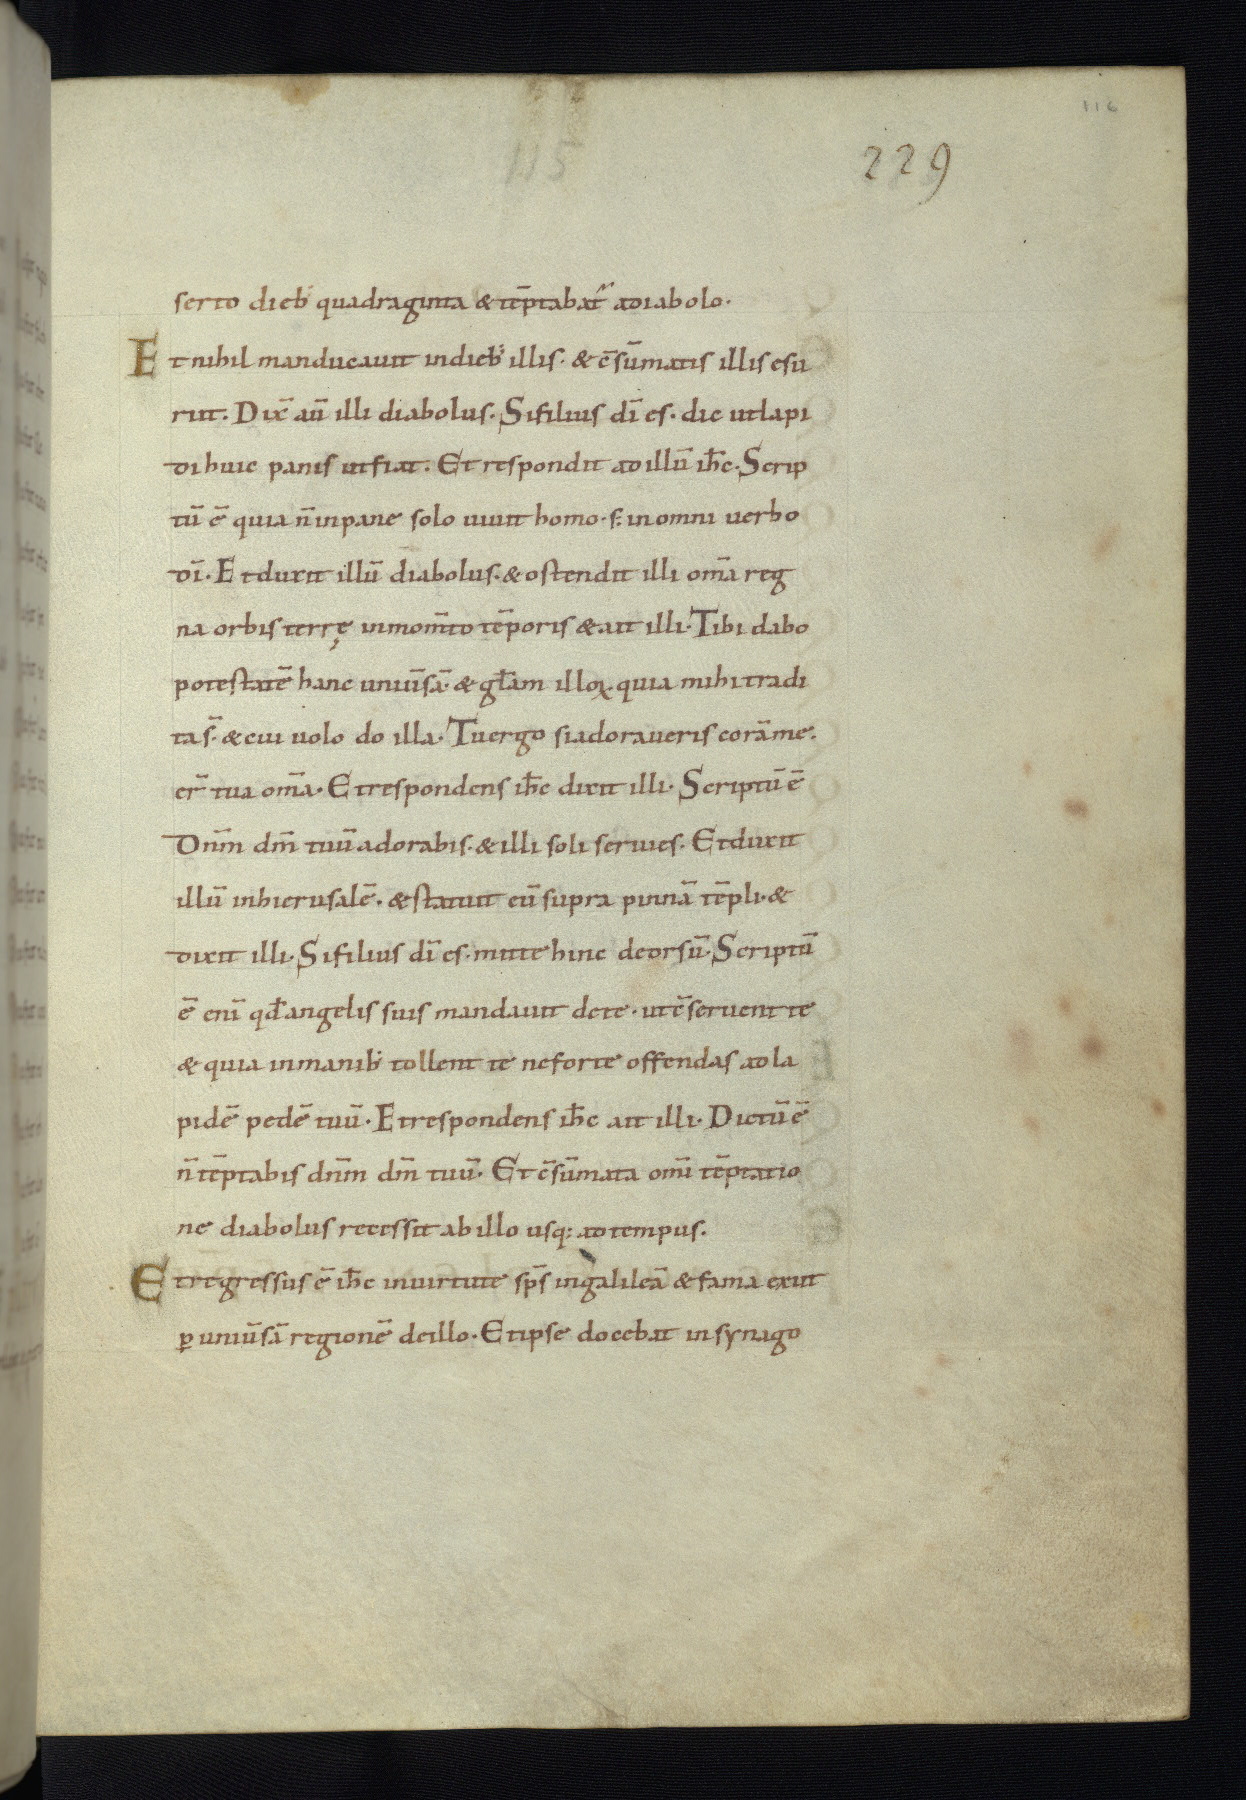 116
115
229
serto dieb; quadraginta & te̅ptabat᷑ adiabolo·
Et nihil manducauit indieb; illis· & c̅su̅matis illis esu
riit· Dix̅ au̅ illi diabolus· Sifilius di̅ es· dic utlapi
dihuic panis utfiat· Et respondit adillu̅ ih̅c· Scrip
tu̅ e̅ quia n̅ inpane solo uiuit homo· s; inomni uerbo
di̅· Etduxit illu̅ diabolus· & ostendit illi om̅a reg
na orbis terrę inmom̅to te̅poris & ait illi· Tibi dabo
potestate̅ hanc uniu̅sa̅· & gl̅am illoꝝ· quia mihi tradi
ta s̅· & cui uolo do illa· Tuergo siadoraueris cora̅me·
er̅ tua om̅a· Etrespondens ih̅c dixit illi· Scriptu̅ e̅
Dn̅m dm̅ tuu̅ adorabis· & illi soli seruies· Etduxit
illu̅ inhierusale̅· & statuit eu̅ supra pinna̅ te̅pli· &
dixit illi· Sifilius di̅ es· mitte hinc deorsu̅· Scriptu̅
e̅ eni̅ qd̅ angelis suis mandauit dete· utc̅seruent te
& quia inmanib; tollent te neforte offendas adla
pide̅ pede̅ tuu̅· Etrespondens ih̅c ait illi· Dictu̅ e̅
n̅ te̅ptabis dn̅m dm̅ tuu̅· Et c̅su̅mata omi̅ te̅ptatio
ne diabolus recessit abillo usq; adtempus·
Etregressus e̅ ih̅c inuirtute sp̅s ingalilea̅ & fama exiit
ꝑ uniu̅sa̅ regione̅ deillo· Etipse docebat insynago